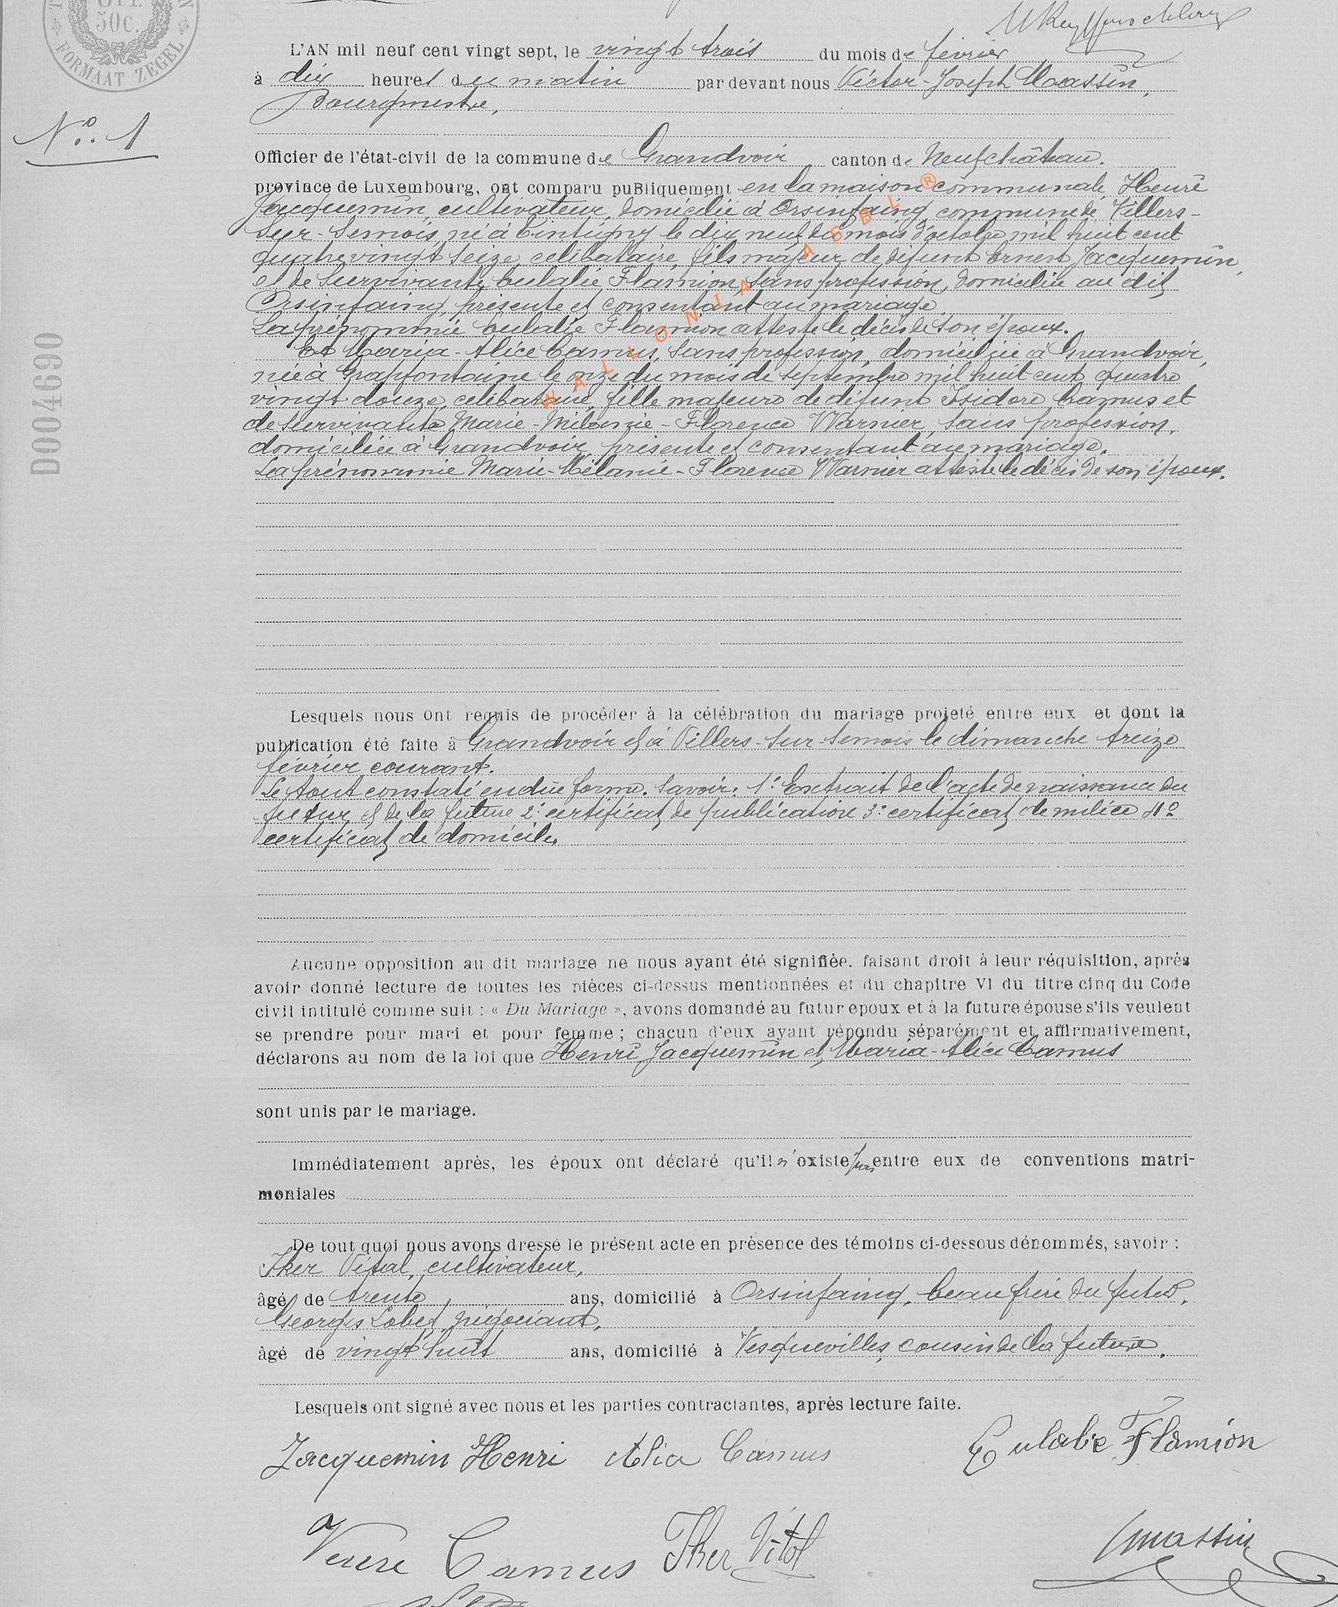 50c.
FORMAAT ZEGEL
L'AN mil neuf cent vingt sept, le vingt trois du mois de février
à dix heures du matin par devant nous Victor-Joseph Massin,
Bourgmestre,
N° 1
Officier de l'état-civil de la commune de Grandvoir canton de Neufchâteau.
province de Luxembourg, ont comparu puBliquement en la maison communale, Henri
Jacquemin, cultivateur, domicilié à Orsinfaing, commune de Villers-
sur-Semois, né à Tintigny le dix neuf du mois d'octobre mil huit cent
quatre vingt seize, célibataire, fils majeur de défunt Ernest Jacquemin,
et de survivante Eulalie Flamion, sans profession, domiciliée au dit
Orsinfaing, présente et consentant au mariage
La prénommée Eulalie Flamion atteste le décès de son époux.
Et Maria-Alice Camus, sans profession, domiciliée à Grandvoir,
née à Grapfontaine le onze du mois de septembre mil huit cent quatre
vingt douze, célibataire, fille majeure de défunt Isidore Camus et
de survivante Marie-Mélanie-Florence Warnier, sans profession,
domiciliée à Grandvoir, présente et consentant au mariage.
La prénommée Marie-Mélanie-Florence Warnier atteste le décès de son époux.
WALLONIA ASBL ®
D004690
Lesquels nous ont requis de procéder à la célébration du mariage projeté entre eux et dont la
publication été faite à Grandvoir et à Villers-sur-Semois le dimanche treize
février courant.
Le tout constaté en due forme. Savoir: 1° Extrait de l'acte de naissance du
futur et de la future 2° certificat de publication 3° certificat de milice 4°
certificat de domicile.
Aucune opposition au dit mariage ne nous ayant été signifiée. faisant droit à leur réquisition, après
avoir donné lecture de toutes les pièces ci-dessus mentionnées et du chapitre VI du titre cinq du Code
civil intitulé comme suit : « Du Mariage », avons demandé au futur époux et à la future épouse s'ils veulent
se prendre pour mari et pour femme ; chacun d'eux ayant répondu séparément et affirmativement,
déclarons au nom de la loi que Henri Jacquemin et Maria-Alice Camus
sont unis par le mariage.
Immédiatement après, les époux ont déclaré qu'il n'existe pas entre eux de conventions matri-
moniales
De tout quoi nous avons dressé le présent acte en présence des témoins ci-dessous dénommés, savoir :
Ther Vital, cultivateur,
âgé de trente ans, domicilié à Orsinfaing, beau frère du futur,
Georges Lobet, négociant,
âgé de vingt huit ans, domicilié à Vesquevilles, cousin de la future.
Lesquels ont signé avec nous et les parties contractantes, après lecture faite.
Jacquemin Henri Alice Camus Eulalie Flamion
Veuve Camus Ther Vital Massin